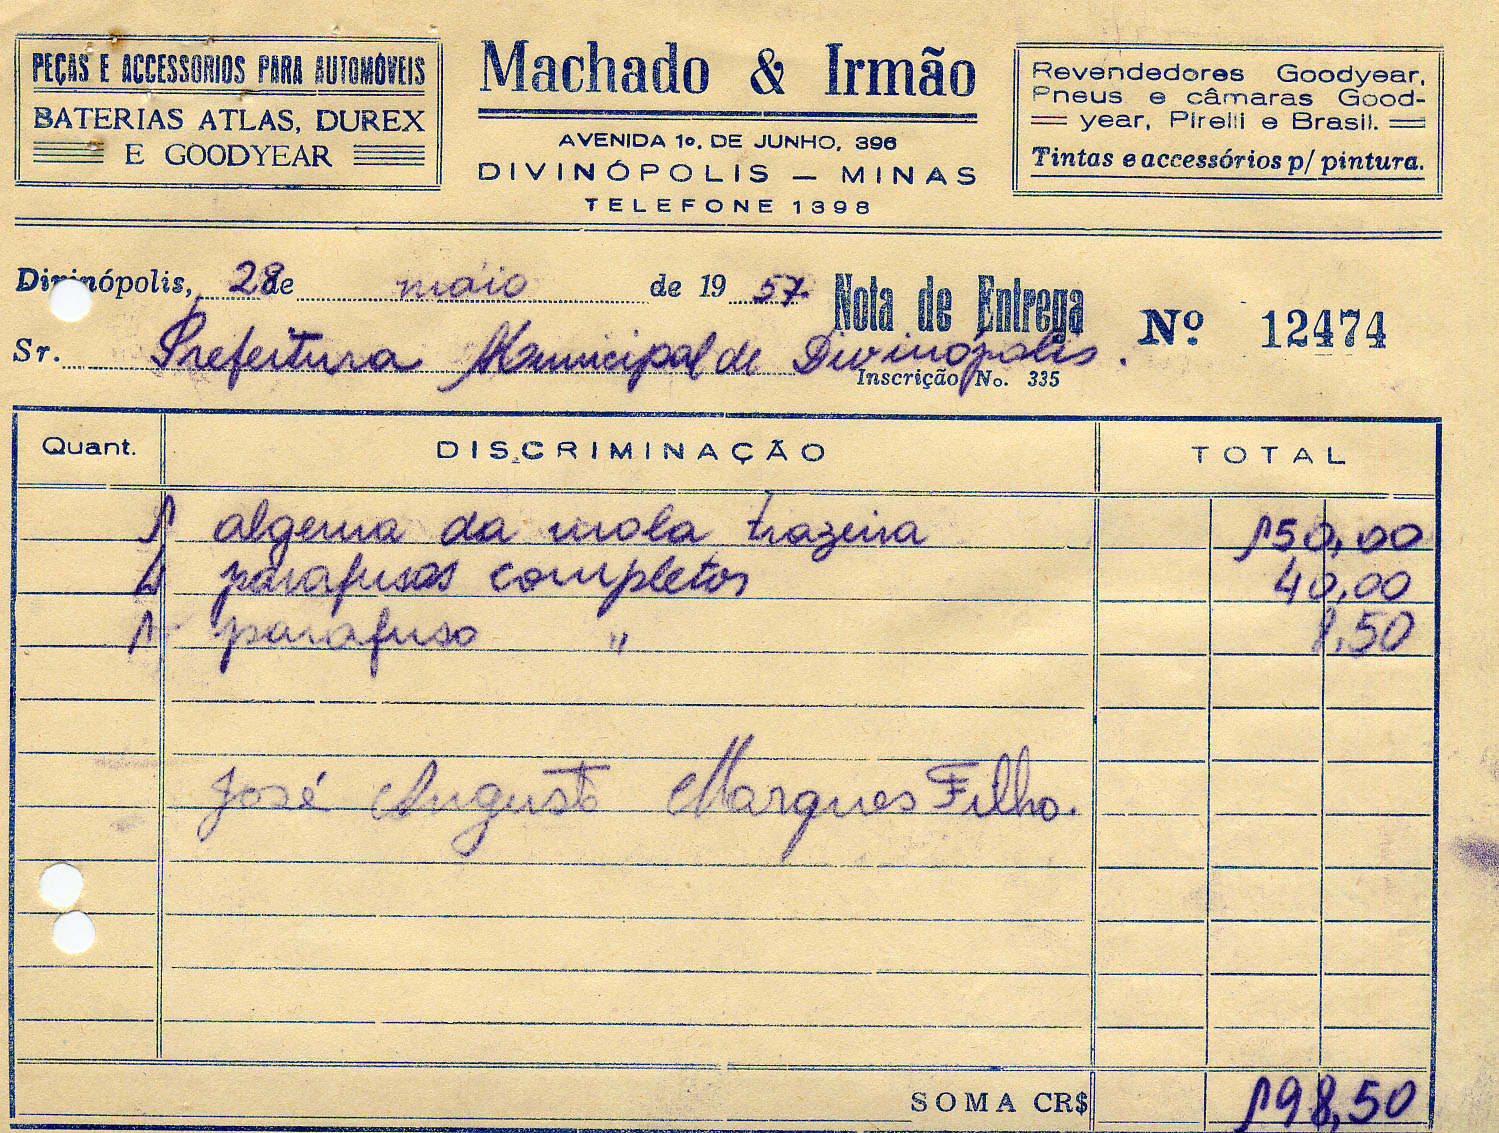 PEÇAS E ACCESSORIOS PARA AUTOMÓVEIS
BATERIAS ATLAS, DUREX
E GOODYEAR
Machado & Irmão
AVENIDA 1º. DE JUNHO, 396
DIVINÓPOLIS — MINAS
TELEFONE 1398
Revendedores Goodyear,
Pneus e câmaras Good-
year, Pirelli e Brasil.
Tintas e accessórios p/ pintura.
Divinópolis, 28 de maio de 1957. Nota de Entrega Nº 12474
Sr. Prefeitura Municipal de Divinópolis.
Inscrição No. 335
Quant. DISCRIMINAÇÃO TOTAL
1 algema da mola trazeira 150,00
4 parafusos completos 40,00
1 parafuso " 8,50
José Augusto Marques Filho.
SOMA CR$ 198,50